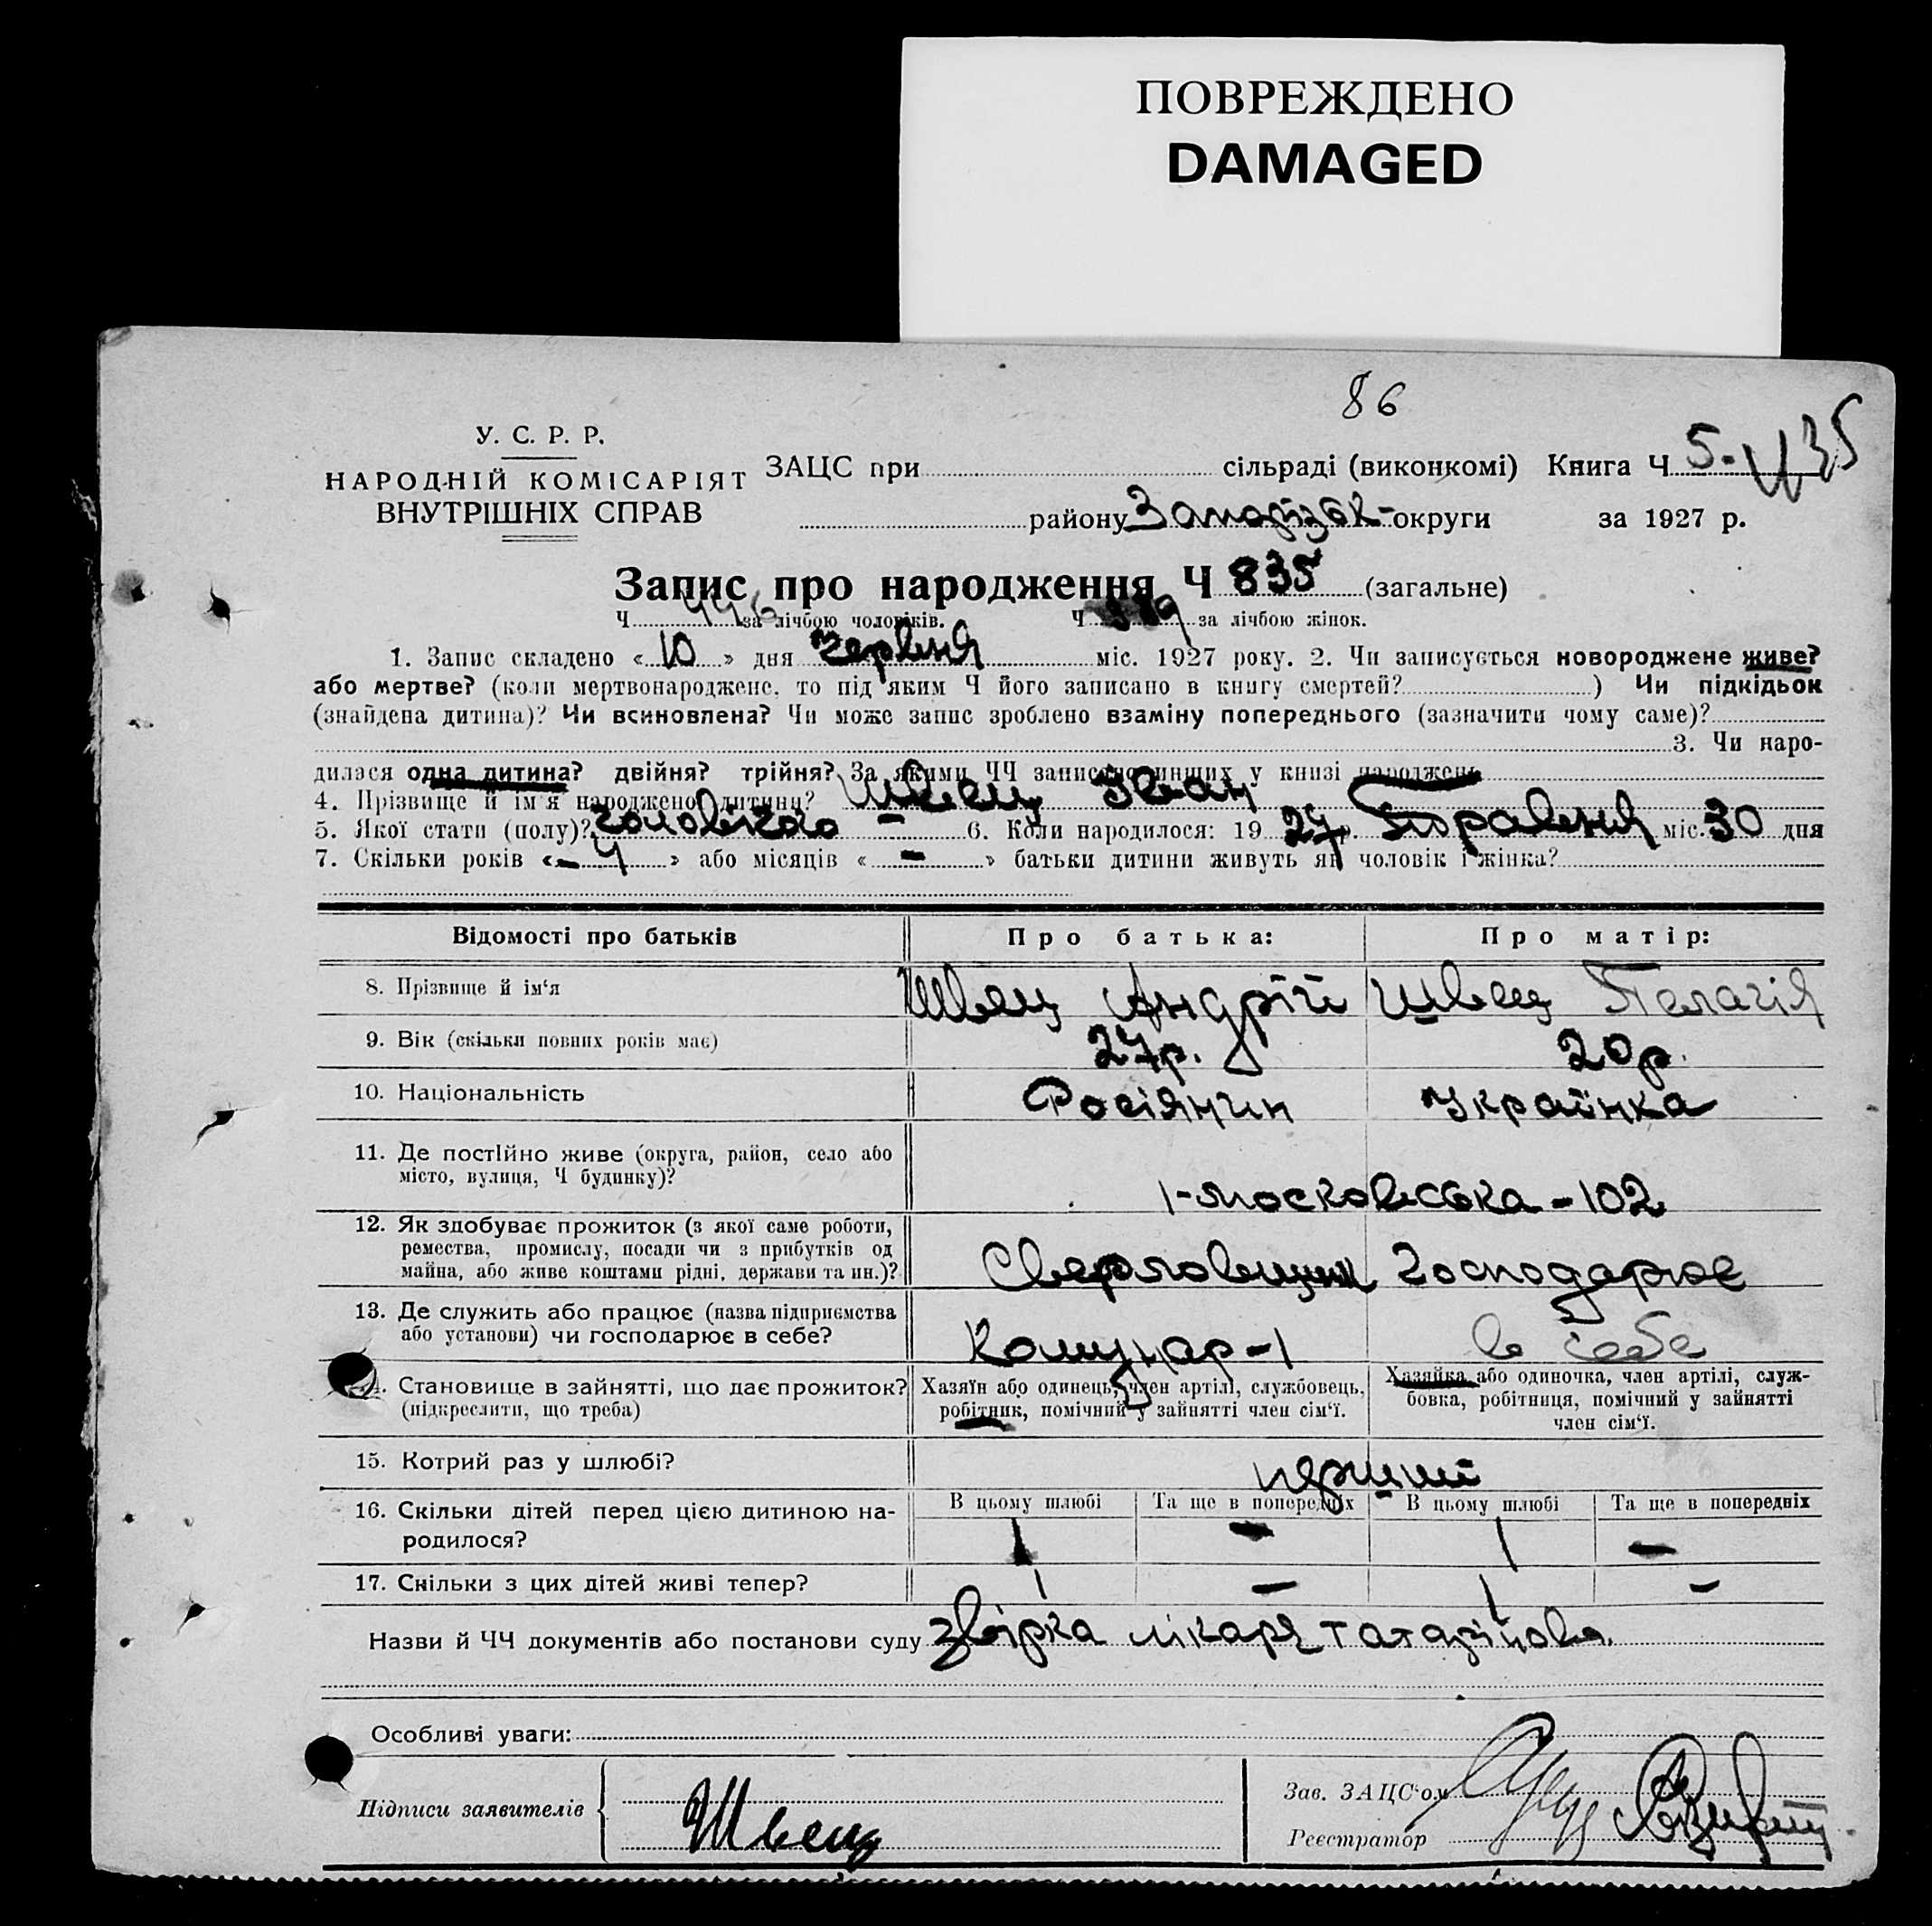 ПОВРЕЖДЕНО
DAMAGED
86
У. С. Р. Р.
НАРОДНІЙ КОМІСАРІЯТ
ВНУТРІШНІХ СПРАВ
ЗАЦС при сільраді (виконкомі) Книга Ч 5-
району Запорізьк- округи за 1927 р.
Запис про народження Ч 835 (загальне)
Ч 446 за лічбою чоловіків. Ч 389 за лічбою жінок.
1. Запис складено « 10 » дня червня міс. 1927 року. 2. Чи записується новороджене живе?
або мертве? (коли мертвонароджене, то під яким Ч його записано в книгу смертей? ) Чи підкідьок
(знайдена дитина)? Чи всиновлена? Чи може запис зроблено взаміну попереднього (зазначити чому саме)?
3. Чи наро-
дилася одна дитина? двійня? трійня? За якими ЧЧ записано инших у книзі народжень
4. Прізвище й ім'я народженої дитини? Швец Іван
5. Якої стати (полу)? чоловічого - 6. Коли народилося: 19 27 р. Травня міс. 30 дня
7. Скільки років «- 4 » або місяців « - » батьки дитини живуть як чоловік і жінка?
Відомості про батьків
Про батька:
Про матір:
8. Прізвище й ім'я Швец Андрій Швец Пелагія
9. Вік (скільки повних років має) 27 р. 20 р.
10. Національність Росіянин Українка
11. Де постійно живе (округа, район, село або
місто, вулиця, Ч будинку)? 1-московська-102
12. Як здобуває прожиток (з якої саме роботи,
ремества, промислу, посади чи з прибутків од
майна, або живе коштами рідні, держави та ин.)? Сверловщик Господарює
13. Де служить або працює (назва підприємства
або установи) чи господарює в себе? Комунар-1 в себе
14. Становище в зайнятті, що дає прожиток?
(підкреслити, що треба)
Хазяїн або одинець, член артілі, службовець,
робітник, помічний у зайнятті член сім'ї.
Хазяйка або одиночка, член артілі, служ-
бовка, робітниця, помічний у зайнятті
член сім'ї.
15. Котрий раз у шлюбі? перший
В цьому шлюбі Та ще в попередніх В цьому шлюбі Та ще в попередніх
16. Скільки дітей перед цією дитиною на-
родилося? 1 - 1 -
17. Скільки з цих дітей живі тепер? 1 - 1 -
Назви й ЧЧ документів або постанови суду звірка лікаря Татарінова.
Особливі уваги:
Підписи заявителів Швец
Зав. ЗАЦС'ом
Реєстратор